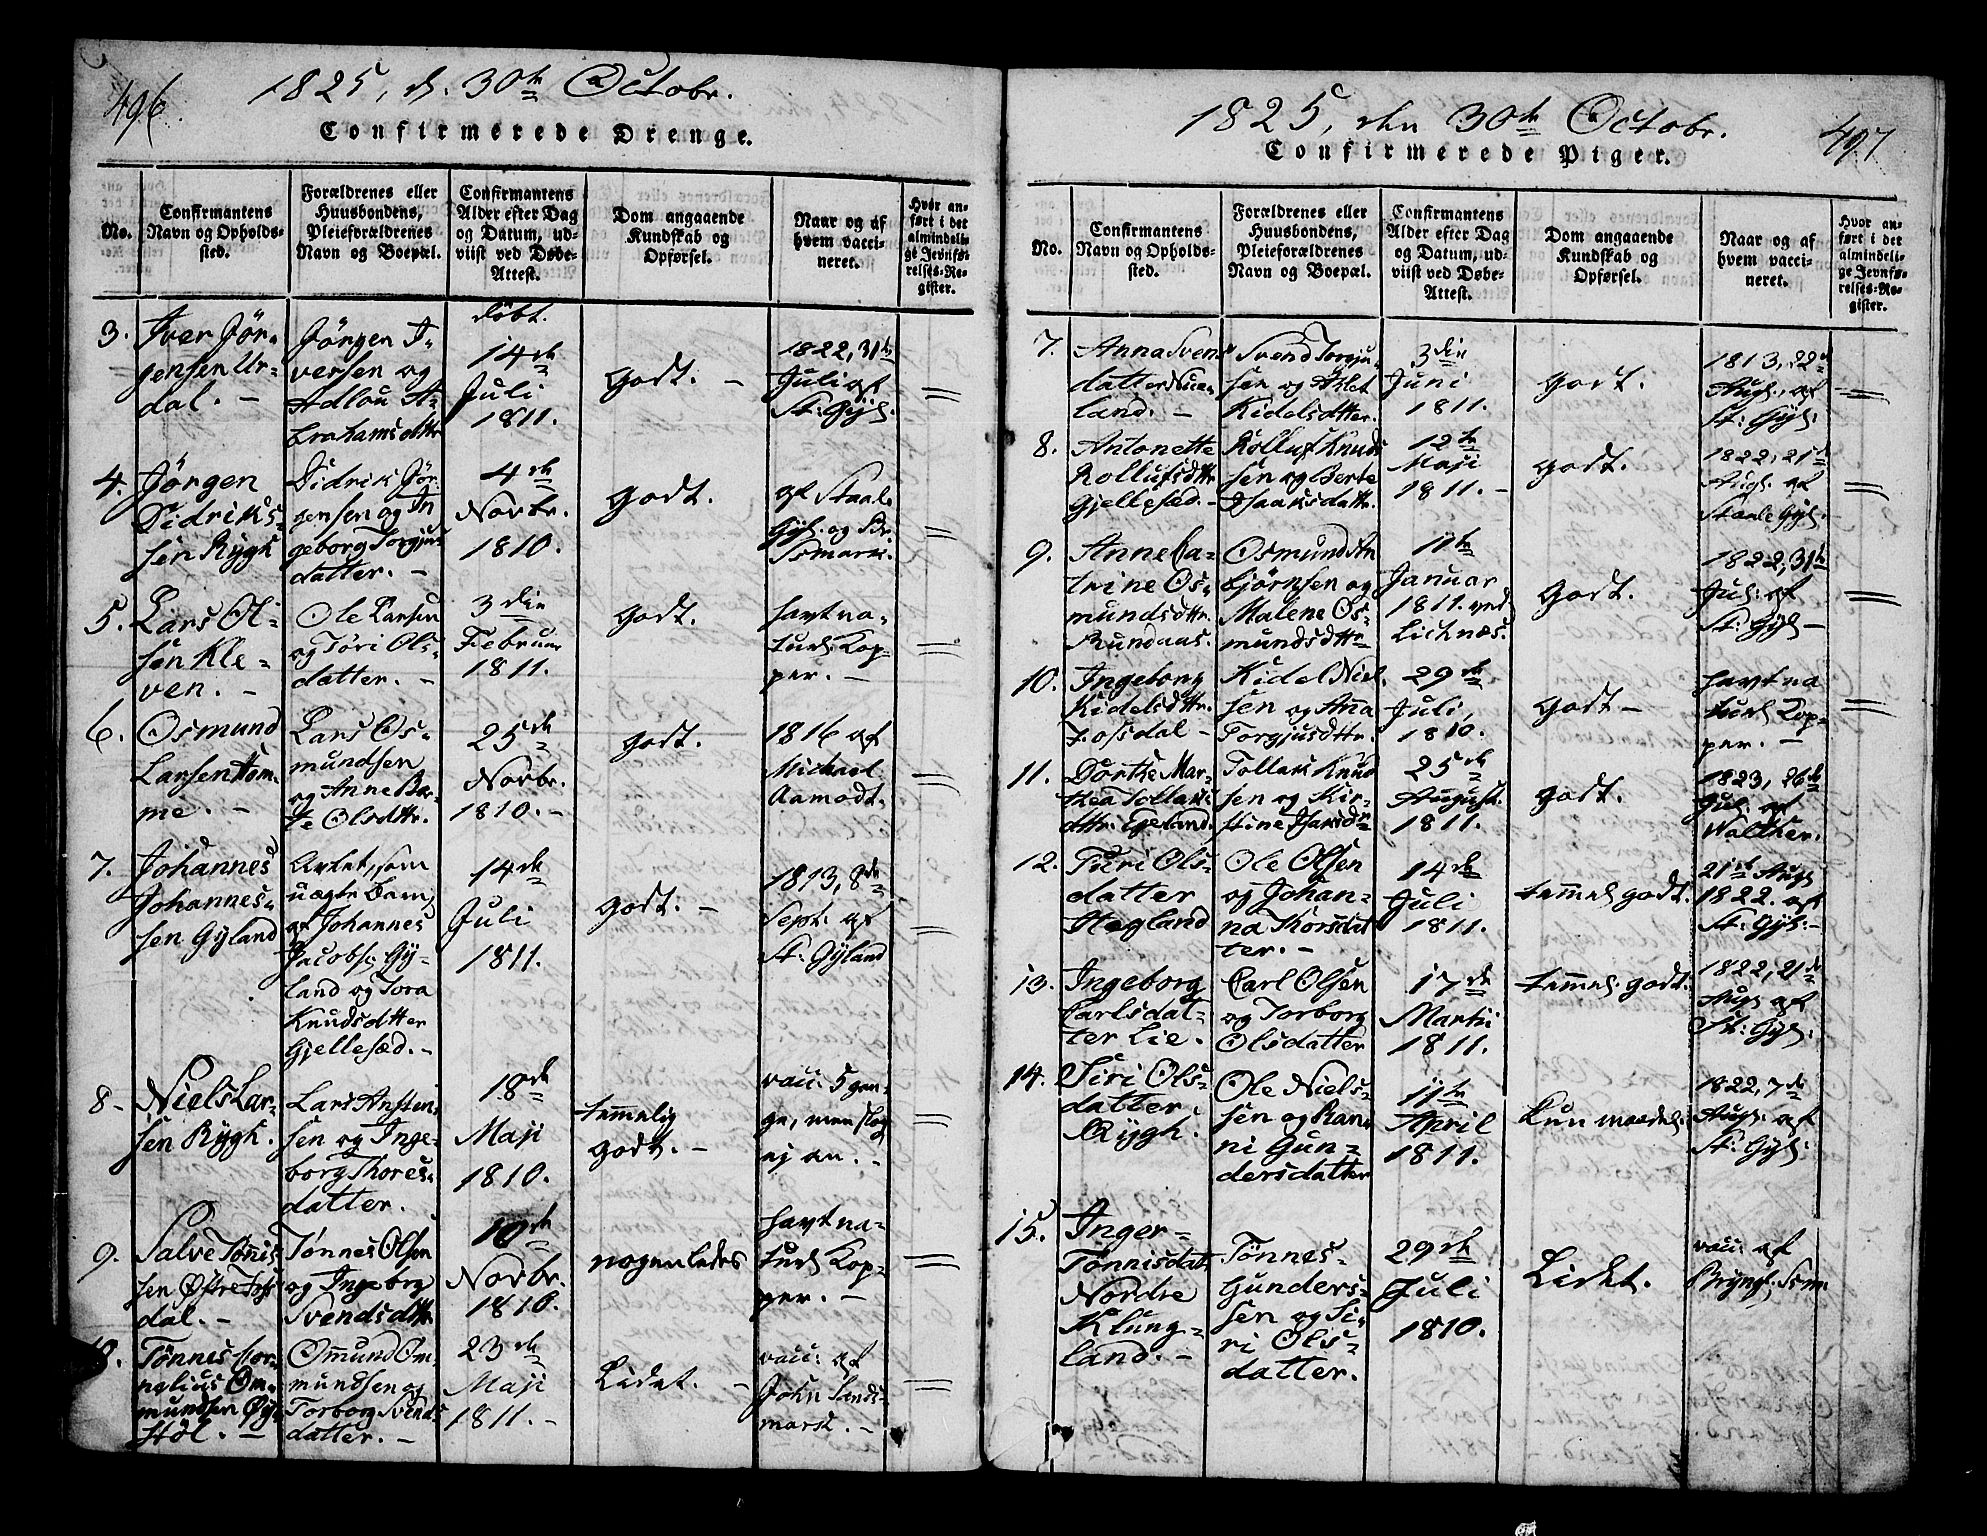 496.
1825, d. 30te Octobr.
Confirmerede Drenge.
No.
Confirmantens
Navn og Opholds-
sted.
Forældrenes eller
Huusbondens,
Pleieforældrenes
Navn og Boepæl.
Confirmantens
Alder efter Dag
og Datum, ud-
viist ved Døbe-
Attest.
Dom angaaende
Kundskab og
Opførsel.
Naar og af
hvem vacci-
neret.
Hvor an-
ført i det
almindeli-
ge Jevnfø-
relses-Re-
gister.
3.
Iver Jör-
gensen Ur-
dal. -
Jörgen I-
versen og
Adlou A-
brahamsdttr
döbt.
14de
Juli
1811.
godt. -
1822, 31te
Juli af
St: Gÿl.
4.
Jörgen
Didriks-
sen Rÿgh
Didrik Jör-
gensen og In
geborg Torgjus-
datter. -
4de
Novbr.
1810.
godt.
af Staal
Gÿl. og Br.
Ssmark.
5.
Lars Ol-
sen Kle-
ven. -
Ole Larsen
og Töri Ols-
datter. -
3die
Februar
1811.
godt.
havt na-
turl. Kop-
per. -
6.
Osmund
Larsen Hom-
me. -
Lars Os-
mundsen
og Anne Ber-
te Olsdttr.
25de
Novbr.
1810. -
godt.
1816 af
Michael
Aamodt.
7.
Johannes
Johannes-
sen Gÿland
Avlet, som
uægte Barn,
af Johannes
Jacobs. Gÿ-
land og Tora
Knudsdtter
Gjellesæd. -
14de
Juli
1811.
godt. -
1813, 8de
Sept. af
St. Gÿland
8-
Niels Lar-
sen Rÿgh.
Lars Ansten-
sen og Inge-
borg Thores-
datter.
18de
Maji
1810.
temmelig
godt. -
vacc: 5 gan-
ge, men slog
ej an. -
9.
Salve Tönnis
sen Østre Fos-
dal. -
Tönnes Olsen
og Ingeborg
Svendsdttr
10de
Novbr.
1810.
nogenledes
havt na-
turl. Kop-
per. -
10.
Tönnes Cor-
nelius Om-
mundsen Øÿ-
stöl. -
Om̄und Om-
mundsen og
Torborg Svends
datter. -
23de
Maji
1811. -
Lidet. -
vacc: af
John Sands-
mark. -
1825, den 30te Octobr.
497
Confirmerede Piger.
No.
Confirmantens
Navn og Opholds-
sted.
Forældrenes eller
Huusbondens,
Pleieforældrenes
Navn og Boepæl.
Confirmantens
Alder efter Dag
og Datum, ud-
viist ved Døbe-
Attest.
Dom angaaende
Kundskab og
Opførsel.
Naar og af
hvem vacci-
neret.
Hvor an-
ført i det
almindeli-
ge Jevnfø-
relses-Re-
gister.
7.
Anna Svens
datter Nue-
land. -
Svend Torgju-
sen og Aslet
Kidelsdtter.
3die
Juni
1811.
godt.
1813, 22de
Aug. af
St: Gÿl.
8.
Antonette
Rollufsdttr.
Gjellesæd. -
Rolluf Knuds
sen og Berte
Isaaksdattr.
12te
Maji
1811. -
godt.
1822, 21de
Aug. af
Staale Gÿl.
9.
Anne Ca-
trine Os-
mundsdttr.
Rundaas.
Osmund An
björnsen og
Malene Os-
mundsdttr
11te
Januar
1811. ved
Lichnæs.
godt.
1822, 31te
Jul. af
St: Gÿl -
10.
Ingeborg
Kidelsdttr.
Fossdal -
Kidel Niel-
sen og Anna
Torgjusdttr.
29de
Juli,
1810.
godt -
havt na
turl. Kop-
per. -
11.
Dorthe Mar-
thea Tollaks-
dttr. Egeland.
Tollak Knud
sen og Kir-
stine Isaksdtr
25de
August
1811.
godt.
1823, 26de
Jul. af
Walther.
12.
Turi Ols-
datter
Hægland
Ole Olsen
og Johan-
na Thorsdat
ter. -
14de
Juli
1811.
tem̄el. godt.
21de Aug.
1822. af
St. Gÿl: -
13.
Ingeborg
Carlsdat-
ter Lie.
Carl Olsen
og Torborg
Olsdatter
17de
Martii
1811.
tem̄el. godt.
1822, 21de
Aug. af
St: Gÿl.
14.
Siri Ols-
datter
Rÿgh.
Ole Niels-
sen og Ran-
ni Gun-
dersdatter
11te
April
1811.
kun maadel.
1822, 7de
Aug. af
St. Gÿl:
15.
Inger
Tönnisdat.
Nordre
Klung-
land. -
Tönnes
Gunders-
sen og Si-
ri Ols-
datter.
29de
Juli
1810.
Lidet.
vacc: af
Brÿngl. Søm.